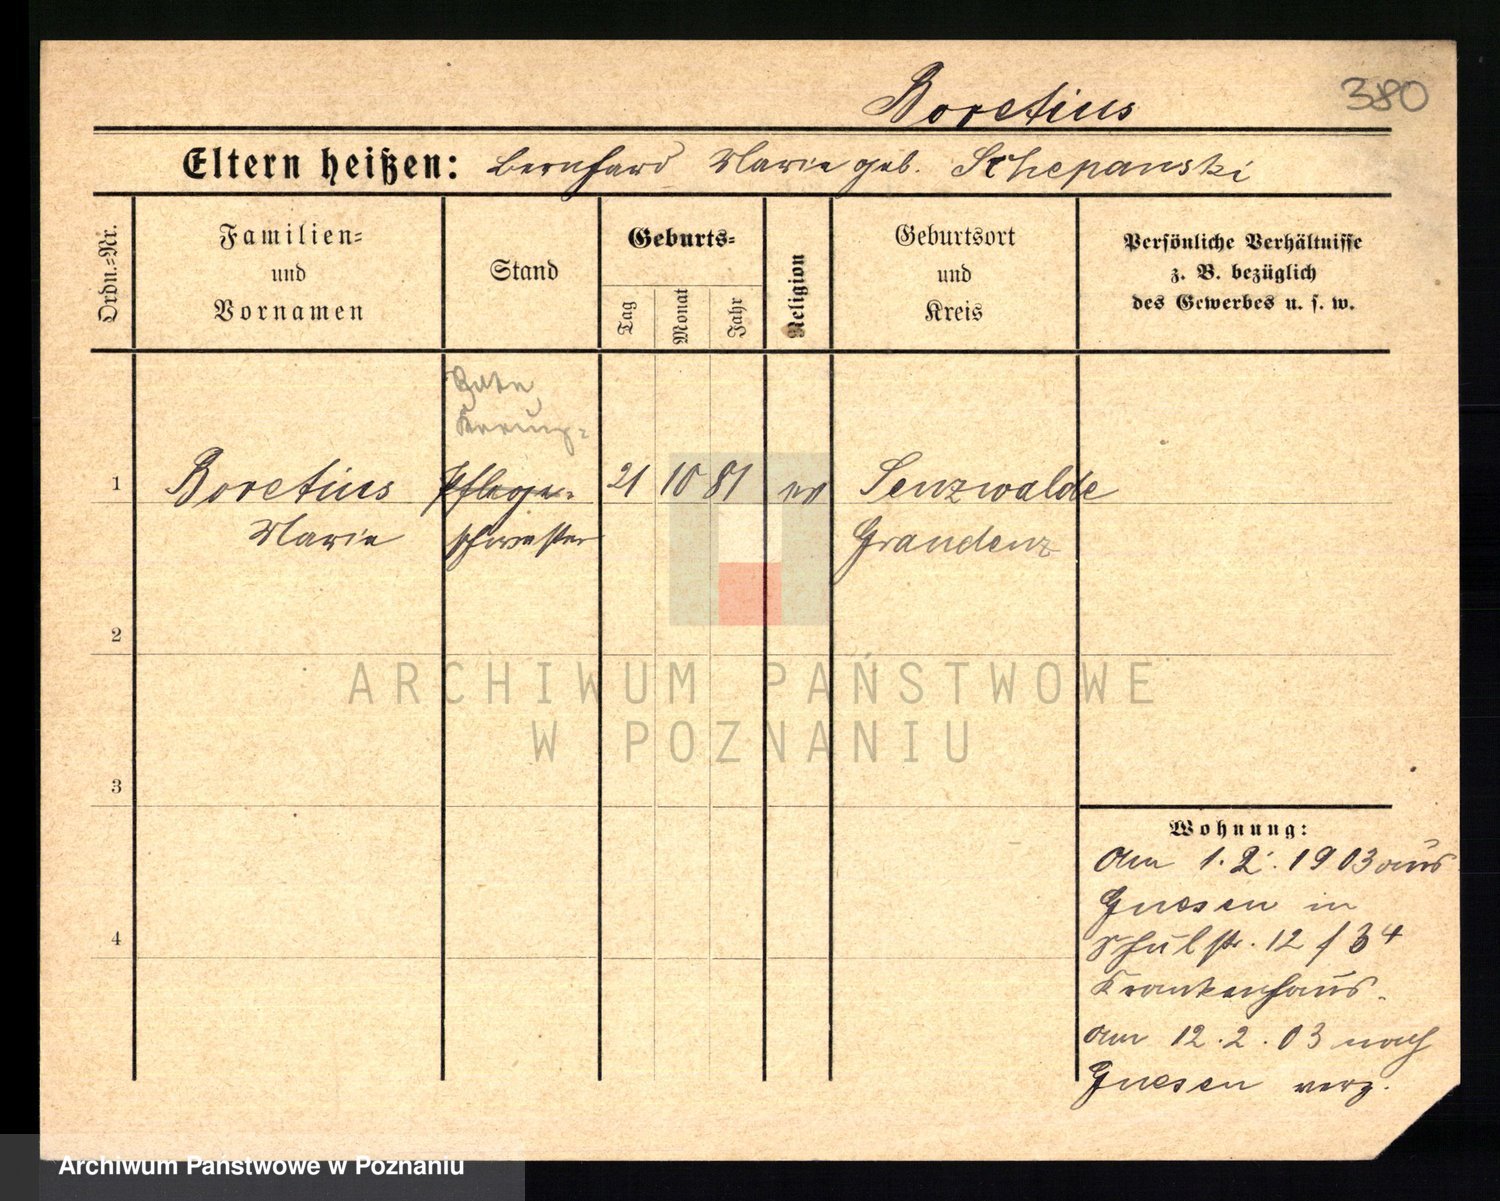 Boretius
380
Eltern heißen: Bernhard Marie geb. Schepanski
Ordn.-Nr.
Familien-
und
Vornamen
Stand
Geburts-
Tag
Monat
Jahr
Religion
Geburtsort
und
Kreis
Persönliche Verhältnisse
z. B. bezüglich
des Gewerbes u. s. w.
Rote
Kreuz-
1 Boretius Pflege- 21 10 81 ev Senzwalde
Marie schwester Graudenz
2
3
4
Wohnung:
Am 1. 2. 1903 aus
Gnesen in
Schulstr. 12 / 34
Krankenhaus.
Am 12. 2. 03 nach
Gnesen verz.
ARCHIWUM PAŃSTWOWE
W POZNANIU
Archiwum Państwowe w Poznaniu